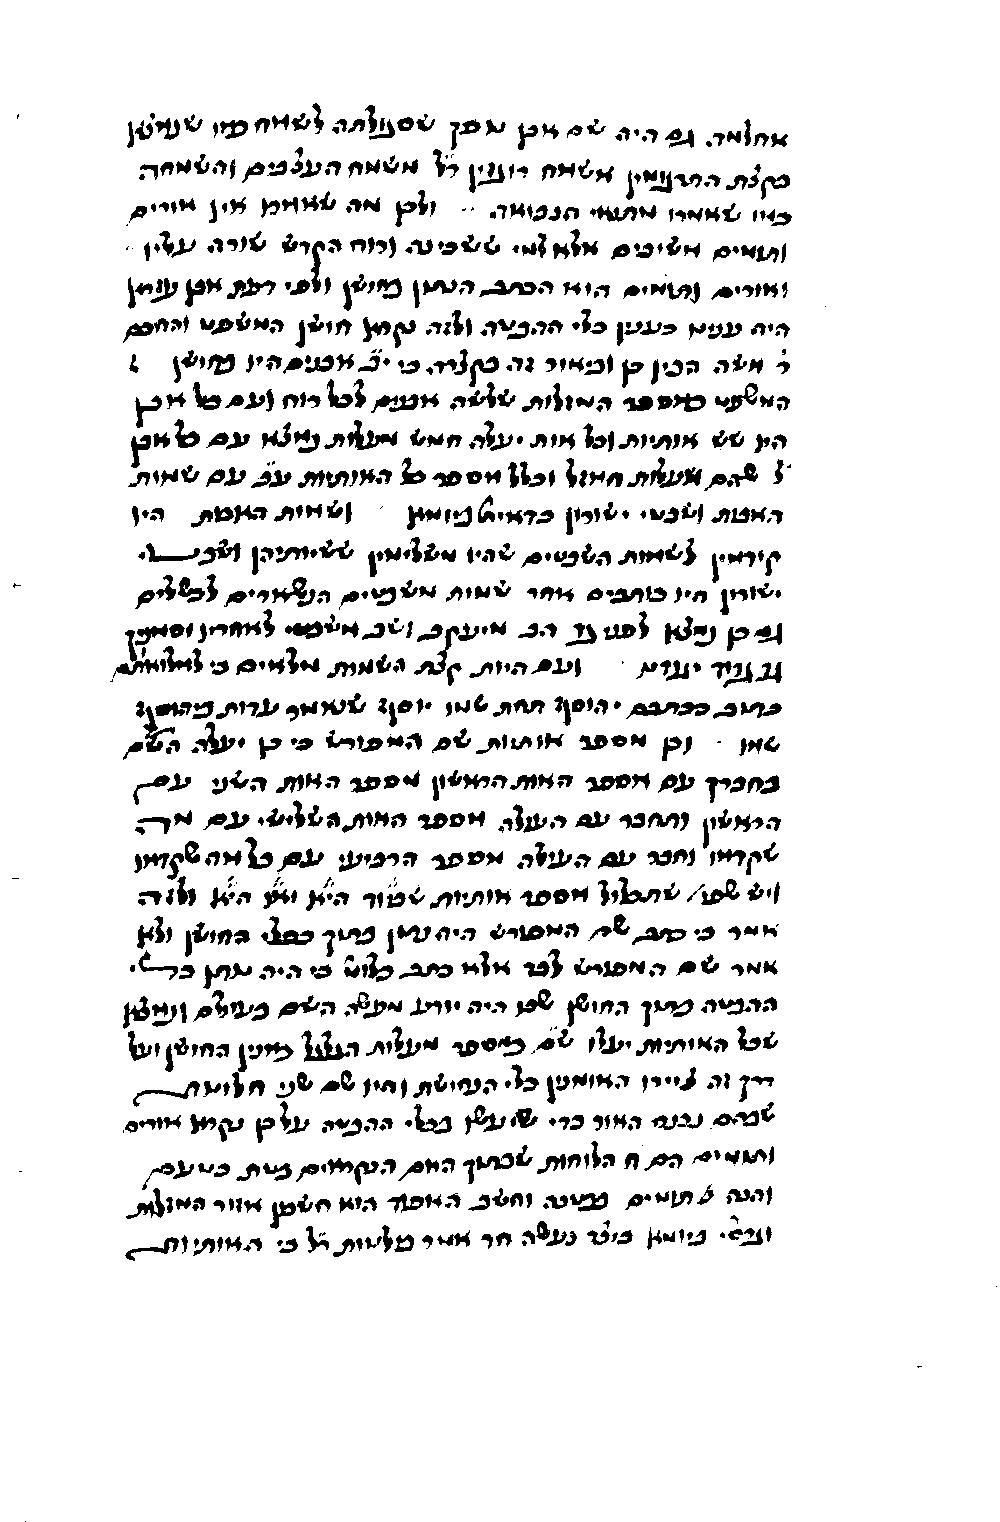 אחלמה. גם היה שם אבן מסך שסגולתה לשמח כמו שנמצא
בקצת התרגומין אשמח רוגזין ר״ל משמח העצבים והשמחה
כמו שאמרו מתנאי הנבואה ולכן מה שאמר אין אורים
ותמים משיבים אלא למי ששכינה ורוח הקדש שורה עליו
ואורים ותמים הוא הכתב הנתון בחושן ולפי דעת אבן עזרא
היה ענינו כענין כלי ההבטה ולזה נקרא חושן המשפט והחכם
ר׳ משה הבין כן וביאור זה בקצרה כי י״ב אבנים היו בחושן
המשפט כמספר המזלות שלשה אבנים לכל רוח ועם כל אבן
היו שש אותיות וכל אות יעלה חמש מעלות נמצא עם כל אבן
ל׳ שהם מעלות המזל וכלל מספר כל האותיות ע״ב עם שמות
האבות ושבטי ישורון כדאיתא ביומא ושמות האבות היו
קוראין לשמות השבטים שהיו משלימין ששיותיהן ושבטי
ישורון היו כותבים אחר שמות משבטים הנשארים להשלים
גם כן נמצא לפני גד הב׳ מיעקב ושב משבטי לאחריו וסימניך
גד גדוד יגודנו ועם היות קצת השמות מלאים כי למלואתם
כתוב ככתבם יהוסף תחת שמו יוסף שנאמר עדות ביהוסף
שמו וכן מספר אותיות שם המפורש כי כן יעלה השם
בחברך עם מספר האות הראשון מספר האות השני עם
הראשון ותחבר עם העולה מספר האות השלישי עם מה
שקדמו וחבר עם העולה מספר הרביעי עם כל מה שקדמו
ויש שפי׳ שתכלול מספר אותיות שם יוד היא ויו היא ולזה
אמר כי כתב שם המפורש היה נתון בתוך כפלי החושן ולא
אמר שם המפורש לבד אלא כתב כלומ׳ כי היה נתון כלי
ההבטה בתוך החושן שבו היה יודע מעשה השם בעולם ונמצא
שכל האותיות יעלו ש״ס כמספר מעלות הגלגל כמנין החושן ועל
דרך זה ציירו האומנין כלי הנחושת והיו שם שני חלונות
שבהם נבנה האור כדי שיעשו בכלי ההבטה על כן נקרא אורים
ותומים הם הלוחות שבתוך האם הנקראים בשת כשעם
והנה ל׳ תומים ממטה וחשב האפוד הוא חשבון אזור המזלות
וגרסי׳ ביומא כיצד נעשה חד אמר בולטות ר״ל כי האותיות